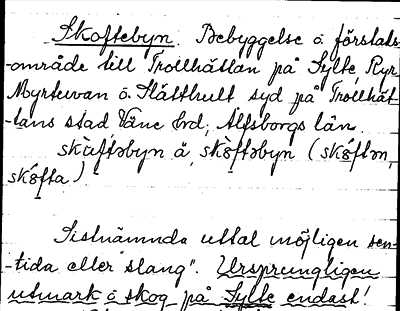 Skoftebyn. Bebyggelse o. förstads-
-område till Trollhättan på Sylte, Ryr
Myrtuvan o. Slätthult syd på Trollhät-
-tans stad, Väne hrd, Älfsborgs län.
skùftəbyn å skòftəbyn (skóftən,
skófta)
Sistnämnda uttal möjligen sen-
-tida eller "slang". Ursprungligen
utmark o skog på Sylte endast!